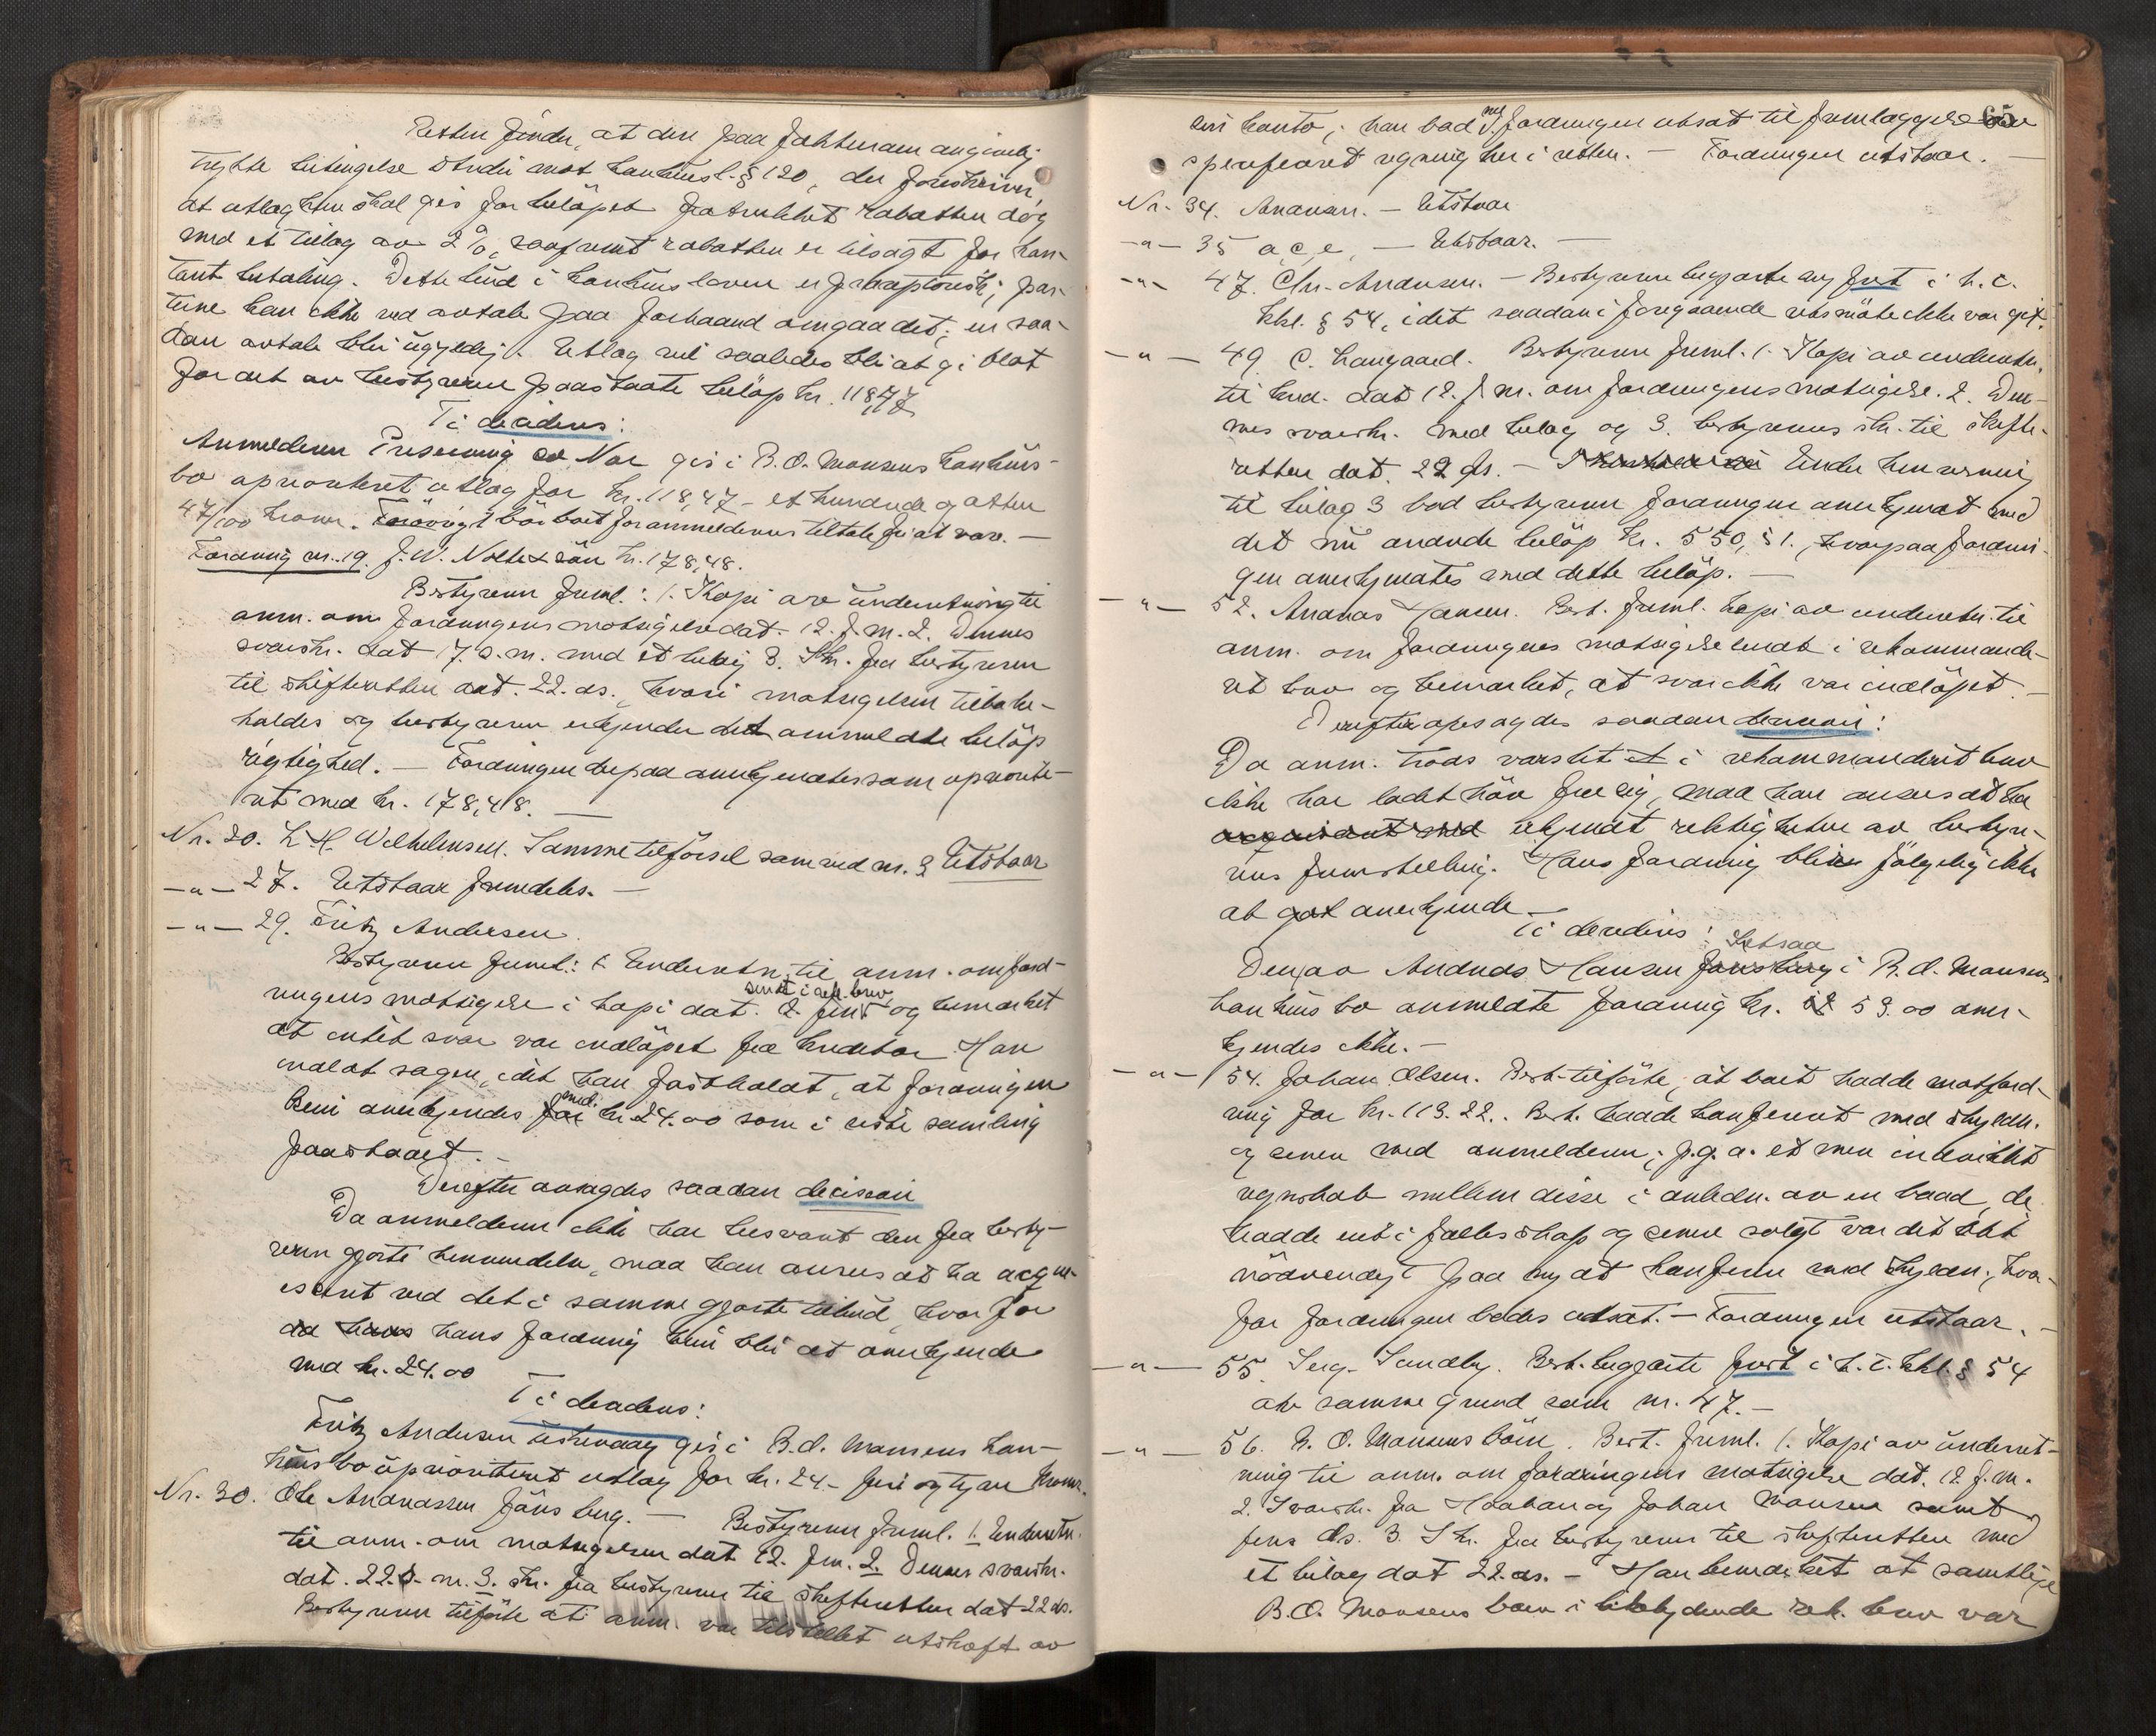 Retten finder, at den paa fakturaen angivelig
trykte betingelse strider mot konkursl. § 120, der foreskriver,
at utlægten skal gis for beløpet fratrukket rabatten dog
med et tillæg av 2 %, saafremt rabatten er tilsagt for kon-
tant betaling. Dette bud i konkursloven er præceptorisk; par-
terne kan ikke ved avtale paa forhaand omgaa det; en saa-
dan avtale blir ugyldig. Utlæg vil saaledes bli at gi blot
for det av bestyreren paastaate beløp kr. 118,47
Ti decideres:
Anmelderen gis i B. O. Monsens konkurs-
bo uprioritert utlæg for kr. 118,47 – et hundrede og atten
47/100 kroner. Forøvrigt bør boet for anmelderens tiltale fri at være. –
Fordring nr. 19. J. W. Nolte & søn kr. 178,48.
Bestyreren freml.: 1. Kopi av underretning til
anm. om fordringens motsigelse dat. 12. f. m. 2. Dennes
svarskr. dat 17. s. m. med et bilag 3. Skr. fra bestyreren
til skifteretten dat. 22. ds., hvori motsigelsen tilbake-
holdes og bestyreren erkjender det anmeldte beløp
rigtighed. – Fordringen derpaa anerkjendtes som upriorite-
ret med kr. 178,48. –
Nr. 20. L. H. Wilhelmsen. Samme tilførsel som ved nr. 3 Utstaar
– " – 27. Utstaar fremdeles. –
– " – 29. Fritz Andersen.
Bestyreren freml.: 1. Underretn. til anm. om ford-
sendt i rek. brev
ringens motsigelse i kopi dat. og bemærket
at intet svar var indløpet fra kreditor. Han
indlot sagen, idet han fastholdt, at fordringen
med
kun anerkjendes for kr. 24.00 som i siste samling
paastaaet. –
Derefter avsagdes saadan decision
Da anmelderen ikke har besvart den fra besty-
reren gjorte henvendelse, maa han ansees at ha acqui-
escert ved det i samme gjorte tilbud, hvorfor
da hans hans fordring kun blir at anerkjende
med kr. 24.00
Ti decideres:
Fritz Andersen gis i B. O. Monsens kon-
kursbo uprioritert utlæg for kr. 24. – fire og tyve kroner.
Nr. 30. Ole Andreassen – Bestyreren freml. 1. Underretn.
til anm. om motsigelsen dat 12. f. m. 2. Dennes svarskr.
dat. 22. s. m. 3. skr. fra bestyreren til skifteretten dat 22 ds.
Bestyreren tilførte at anm. var tilstillet utskrift av
65
sin konto; han bad fordringen utsat til fremlæggelse av
specificeret regning her i retten. – Fordringen utstaar. –
Nr. 34. Anansen. – Utstaar
– " – 35 a, c, e, – Utstaar. –
– " – 47. Chr. Anansen. – Bestyreren begjærte ny frist i h. t.
kkl. § 54, idet saadan i foregaaende retsmøte ikke var git.
– " – 49. C. Langaard. Bestyreren freml. 1. Kopi av underretn.
til kred. dat 12. f. m. om fordringens motsigelse. 2. Den-
nes svarskr. med bilag og 3. bestyrerens skr. til skifte-
retten dat. 22 ds. – Under henvisning
til bilag 3 bad bestyreren fordringen anerkjendt med
det nu ændrede beløp kr. 550,51., hvorpaa fordrin-
gen anerkjendtes med dette beløp. –
– " – 52. Andreas Hansen. Best. freml. kopi av underretn. til
anm. om fordringens motsigelse sendt i rekommande-
ret brev og bemærket, at svar ikke var indløpet. –
Derefter avsagdes saadan decision:
Da anm. trods varslet i rekommanderet brev
ikke har ladet høre fra sig, maa han ansees at ha
erkjendt rigtigheten av bestyre-
rens fremstilling. Hans fordring blir følgelig ikke
at anerkjende. –
Ti decideres:
Den av Andreas Hansen i B. O. Monsens
konkursbo anmeldte fordring kr. 53.00 aner-
kjendes ikke. –
– " – 54. Johan Olsen. Best. tilførte, at boet hadde motford-
ring for kr. 113.22. Best. hadde konferert med skyldn.
og senere med anmelderen; p. g. a. et mer indviklet
regnskab mellem disse i anledn. av en baad, de
hadde eiet i fællesskap og senere solgt var det blit
nødvendig paa ny at konferere med skyldn., hvor-
for fordringen bedes utsat. – Fordringen utstaar. –
– " – 55. Serg. Sandby. Best. begjærte frist i h. t. kkl. § 54
av samme grund som nr. 47. –
– " – 56. B. O. Monsens børn. Best. freml. 1. Kopi av underret-
ning til anm. om fordringens motsigelse dat. 12. f. m.
2. Svarskr. fra Haakon og Johan Monsen samt
3. Skr. fra bestyreren til skifteretten med
et bilag dat 22. ds. – Han bemærket at samtlige
B. O. Monsens børn i likelydende rek. brev var